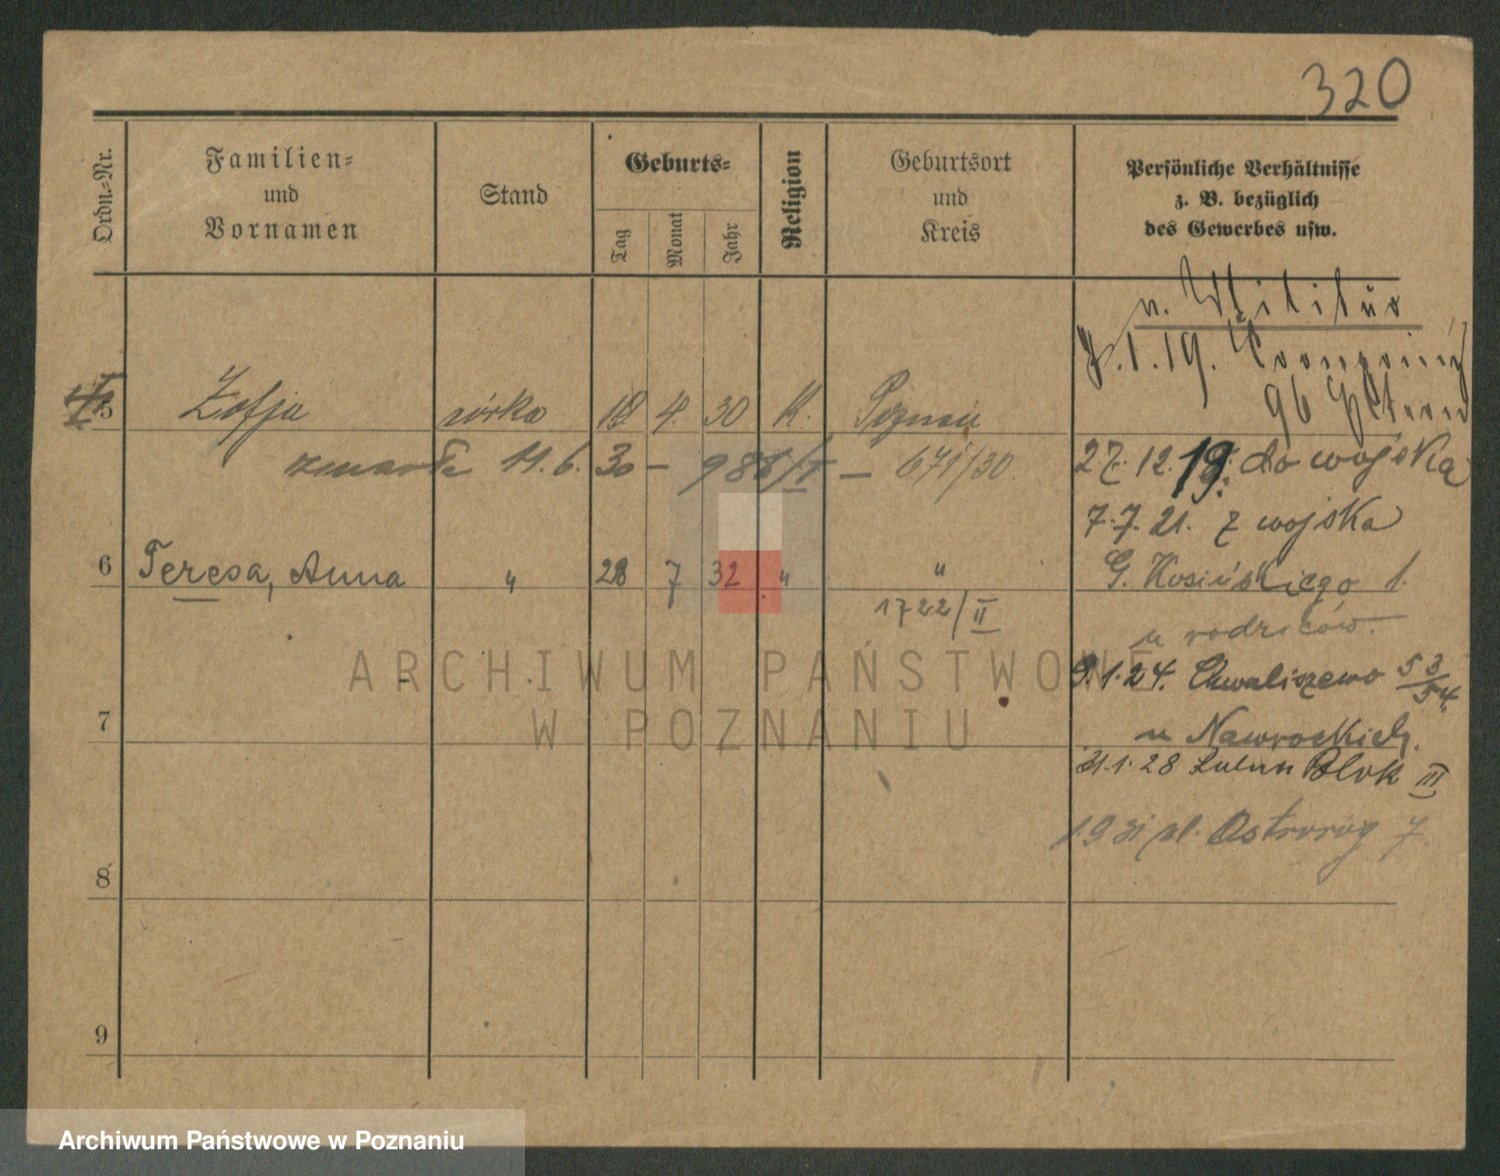 320
Ordn.-Nr.
Familien-
und
Vornamen
Stand
Geburts-
Tag
Monat
Jahr
Religion
Geburtsort
und
Kreis
Persönliche Verhältnisse
z. B. bezüglich
des Gewerbes usw.
v. Militär
1.19.
96 Eltern
5 Zofja córka 18 4. 30 K. Poznań
zmarła 11.6.30 – 986/I – 671/30
27.12.19. do wojska
7.7.21. z wojska
6 Teresa, Anna " 28 7 32 " "
1722/II
G. Kosińskiego 1.
u rodziców.
9.1.24. Chwaliszewo 53/54
u Nawrockich.
31.1.28 Blok III
1931 pl. Ostroróg 7.
7
8
9
ARCHIWUM PAŃSTWOWE
W POZNANIU
Archiwum Państwowe w Poznaniu